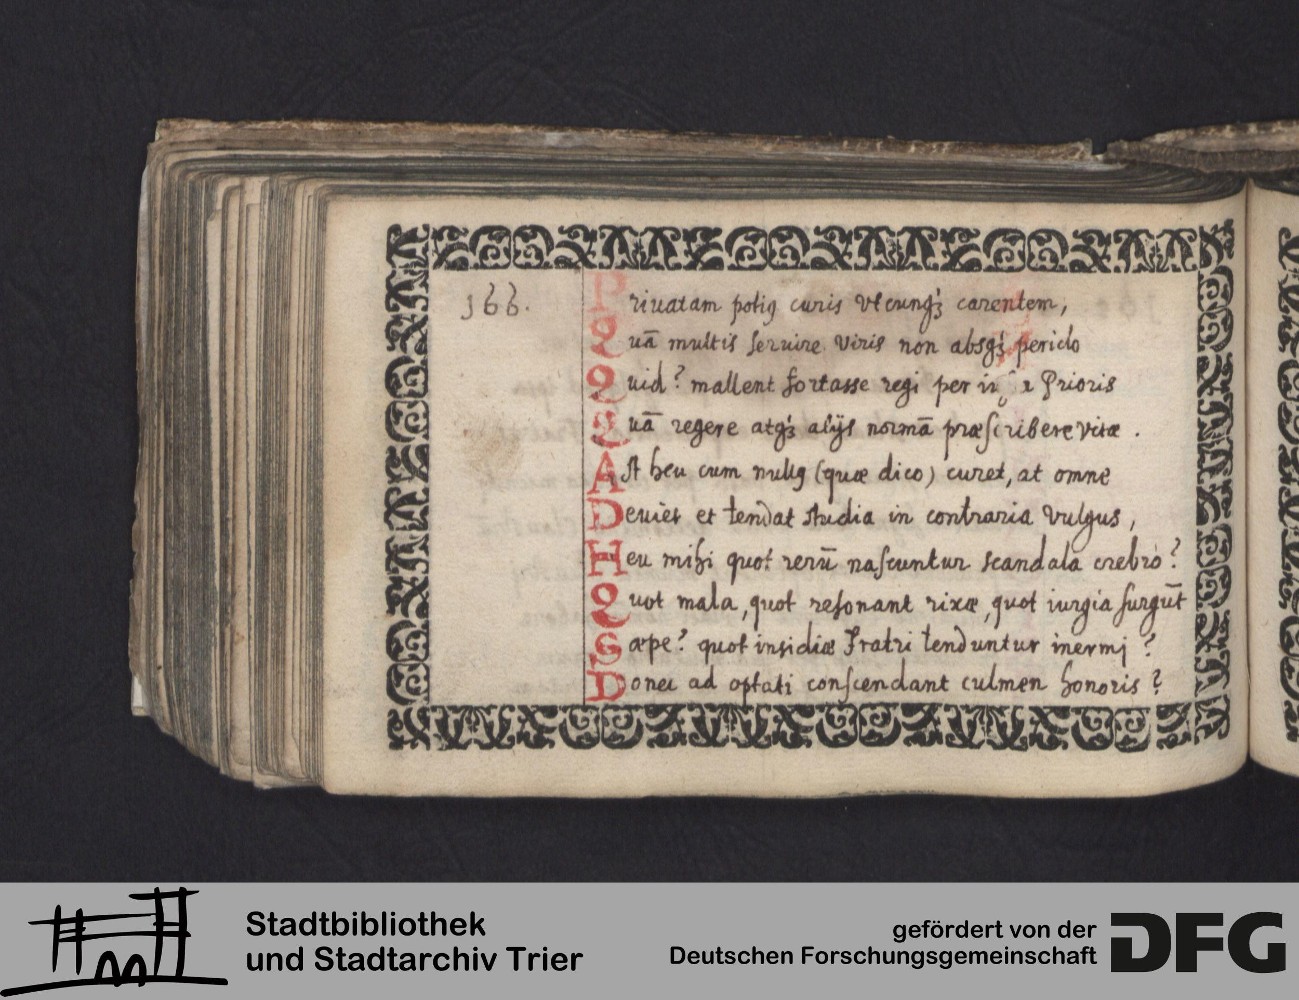 166.
Priuatam potiꝰ curis vtcunqꝫ carentem,
Quā multis seruire viris non absqꝫ periclo
Quid? mallent fortasse regi per Prioris
Quā regere atqꝫ alijs normā præscribere vitæ.
Ast heu cum nullꝰ (quæ dico) curet, at omne
Deuiet et tendat studia in contraria vulgus,
Heu mihi quot rerū nascuntur scandala crebro?
Quot mala, quot resonant rixæ, quot iurgia surgūt
Sæpe? quot insidiæ Fratri tenduntur inermi?
Donec ad optati conscendant culmen honoris?
Stadtbibliothek
und Stadtarchiv Trier
gefördert von der
Deutschen Forschungsgemeinschaft
DFG